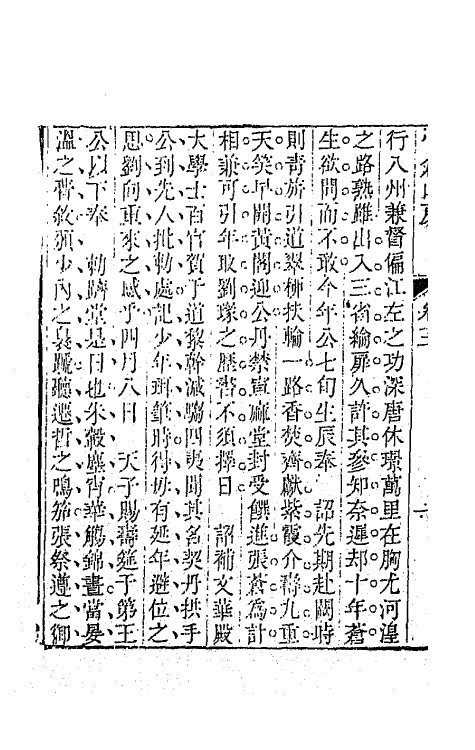 行八州兼督偏江左之功深唐休璟萬里在胸尤河湟
之路熟雖出入三省綸扉久許其參知奈遲却十年蒼
生欲問而不敢今年公七旬生辰奉　詔先期赴闕時
則青旂引道翠柳扶輪一路香焚齊獻紫霞介壽九重
天笑早開黃閣迎公丹禁宣麻堂封受饌進張蒼為計
相兼可引年取劉璞之歷書不須擇日　詔補文華殿
大學士百官賀于道黎幹減騶四夷聞其名契丹拱手
公到先人批勅處記少年珥筆時得毋有延年避位之
思劉向重來之感乎四月八日　天子賜壽筵于第王
公以下奉　勅躋堂是日也朱轂塵宵華觴錦晝當晏
溫之晉敘頒少內之
遷哲之鳴笳張祭遵之御